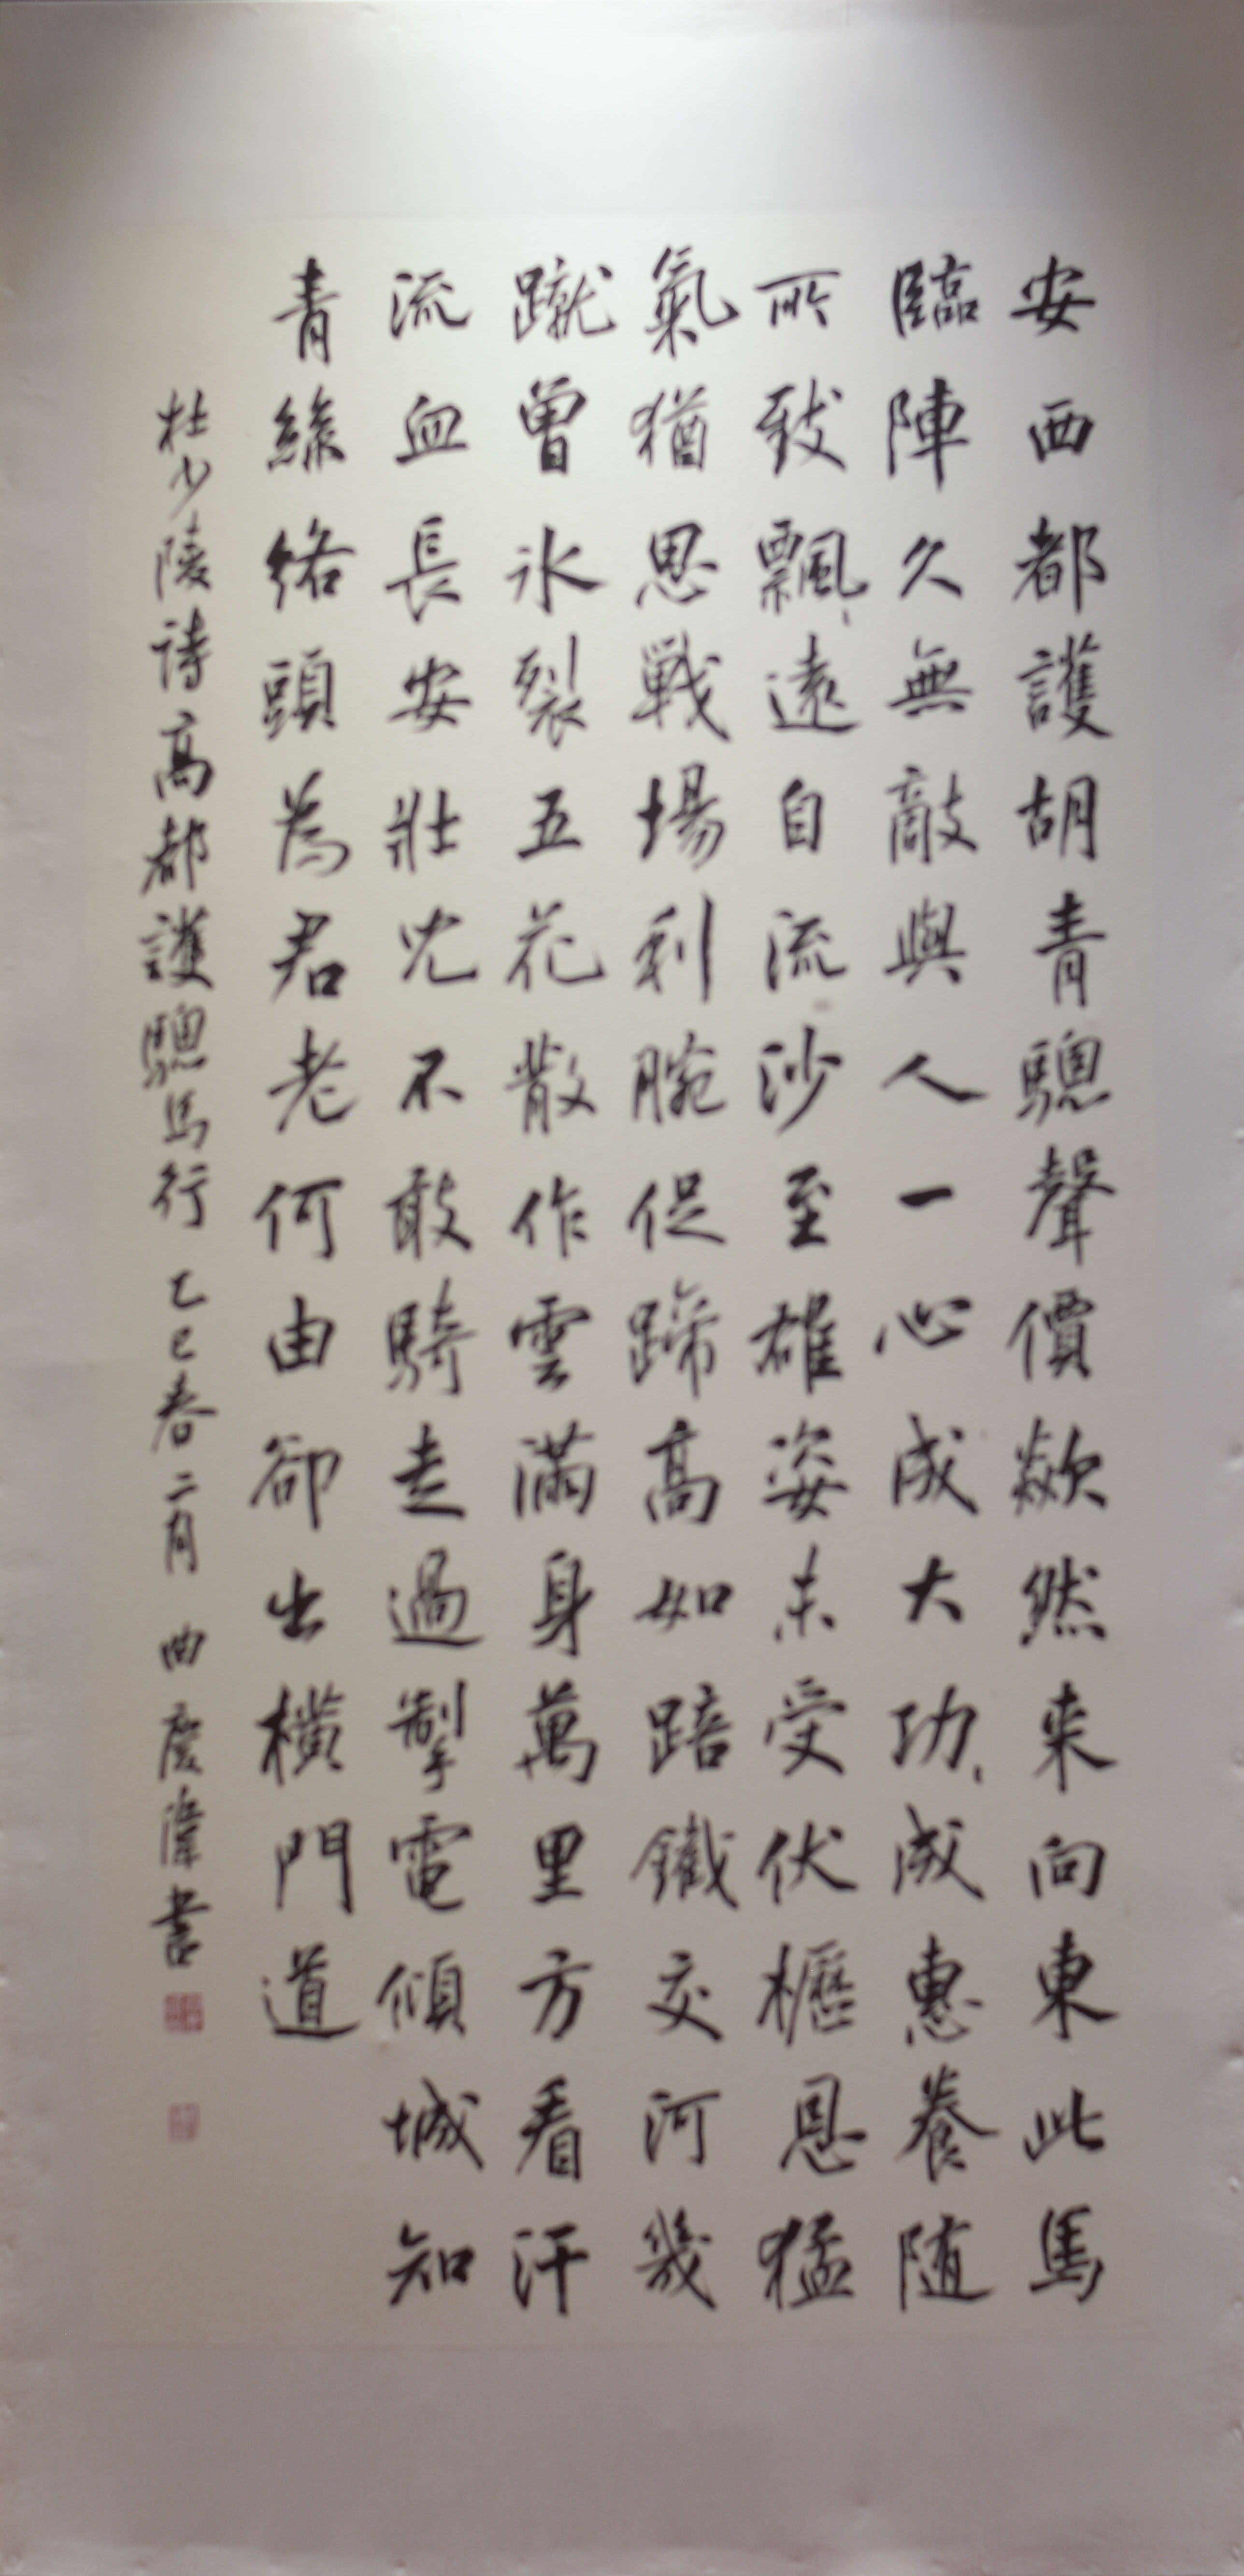 安西都護胡青驄聲價歘然来向東此馬
臨陣久無敵與人一心成大功、成惠養随
所致飄、遠自流沙至雄姿未受伏櫪恩猛
氣猶思戰場利腕促蹄高如踣鐵交河幾
蹴曾冰裂五花散作雲滿身萬里方看汗
流血長安壯兒不敢騎走過掣電傾城知
青絲絡頭為君老何由卻出橫門道
杜少陵詩高都護驄馬行 乙巳春二月 曲慶偉書